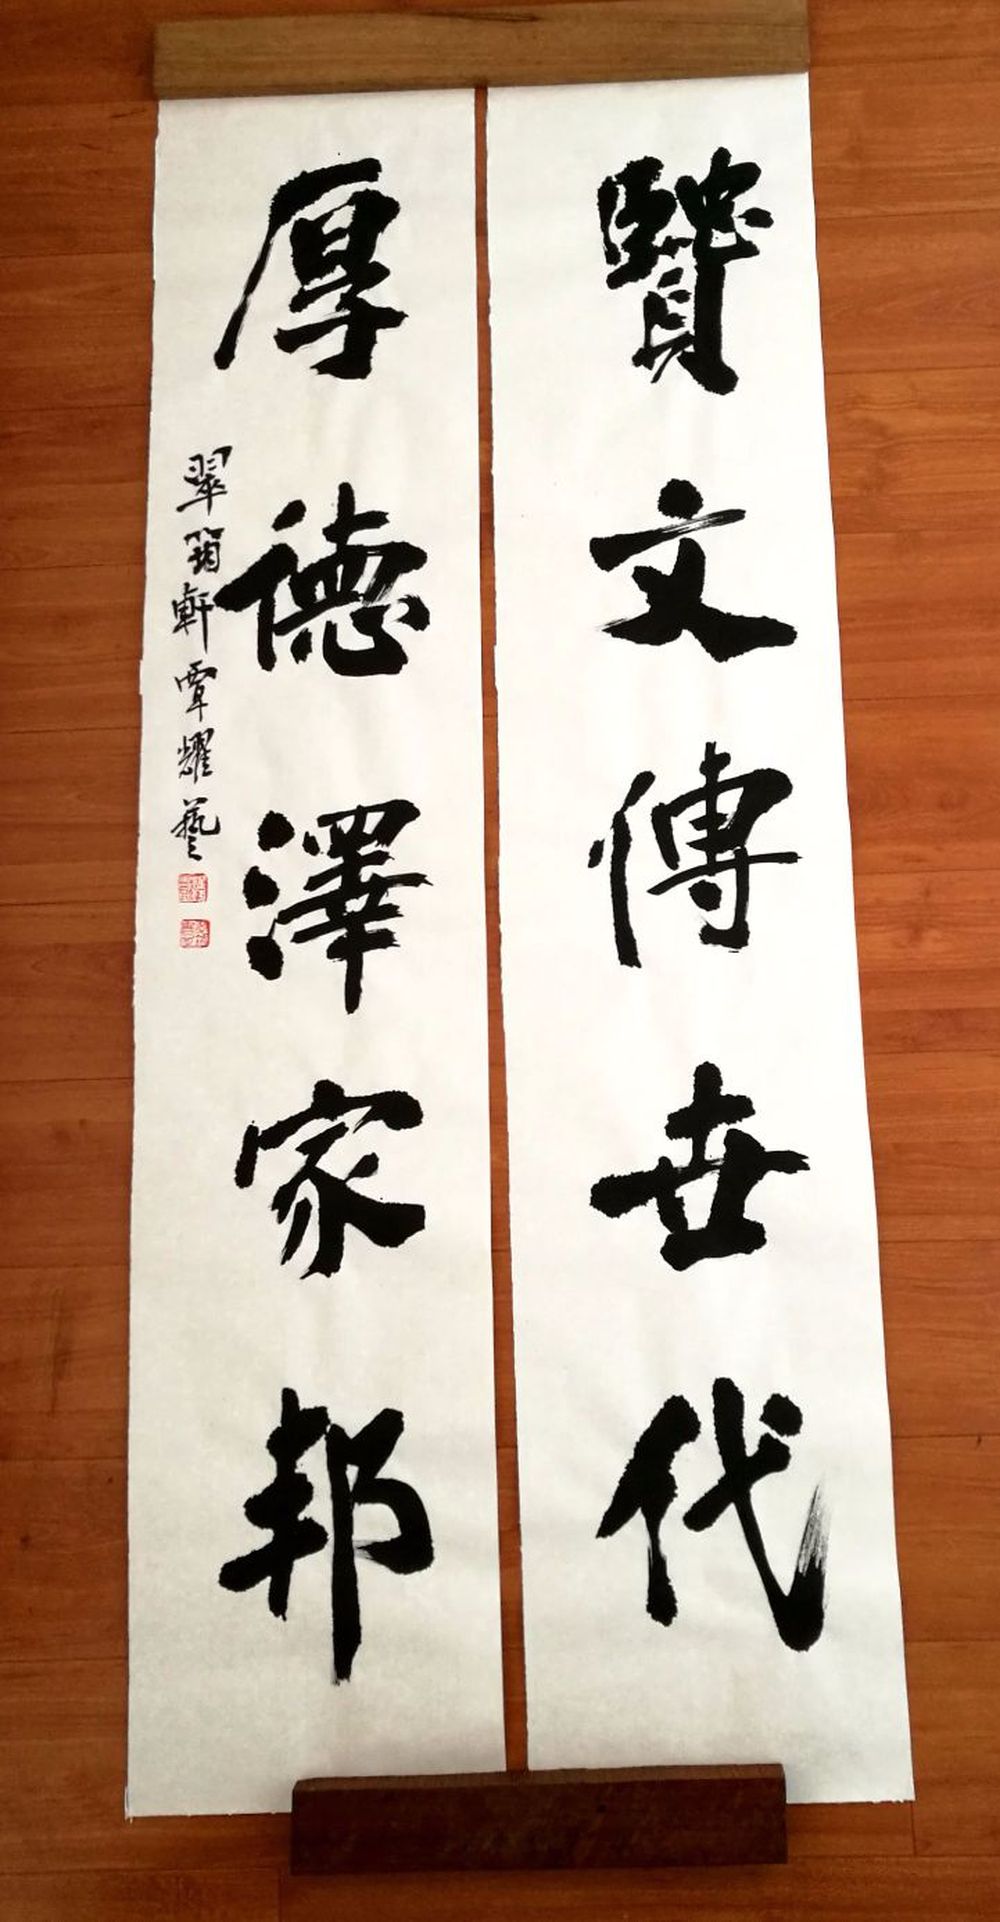 贒文傳世代
厚德澤家邦
翠筠軒覃耀藝